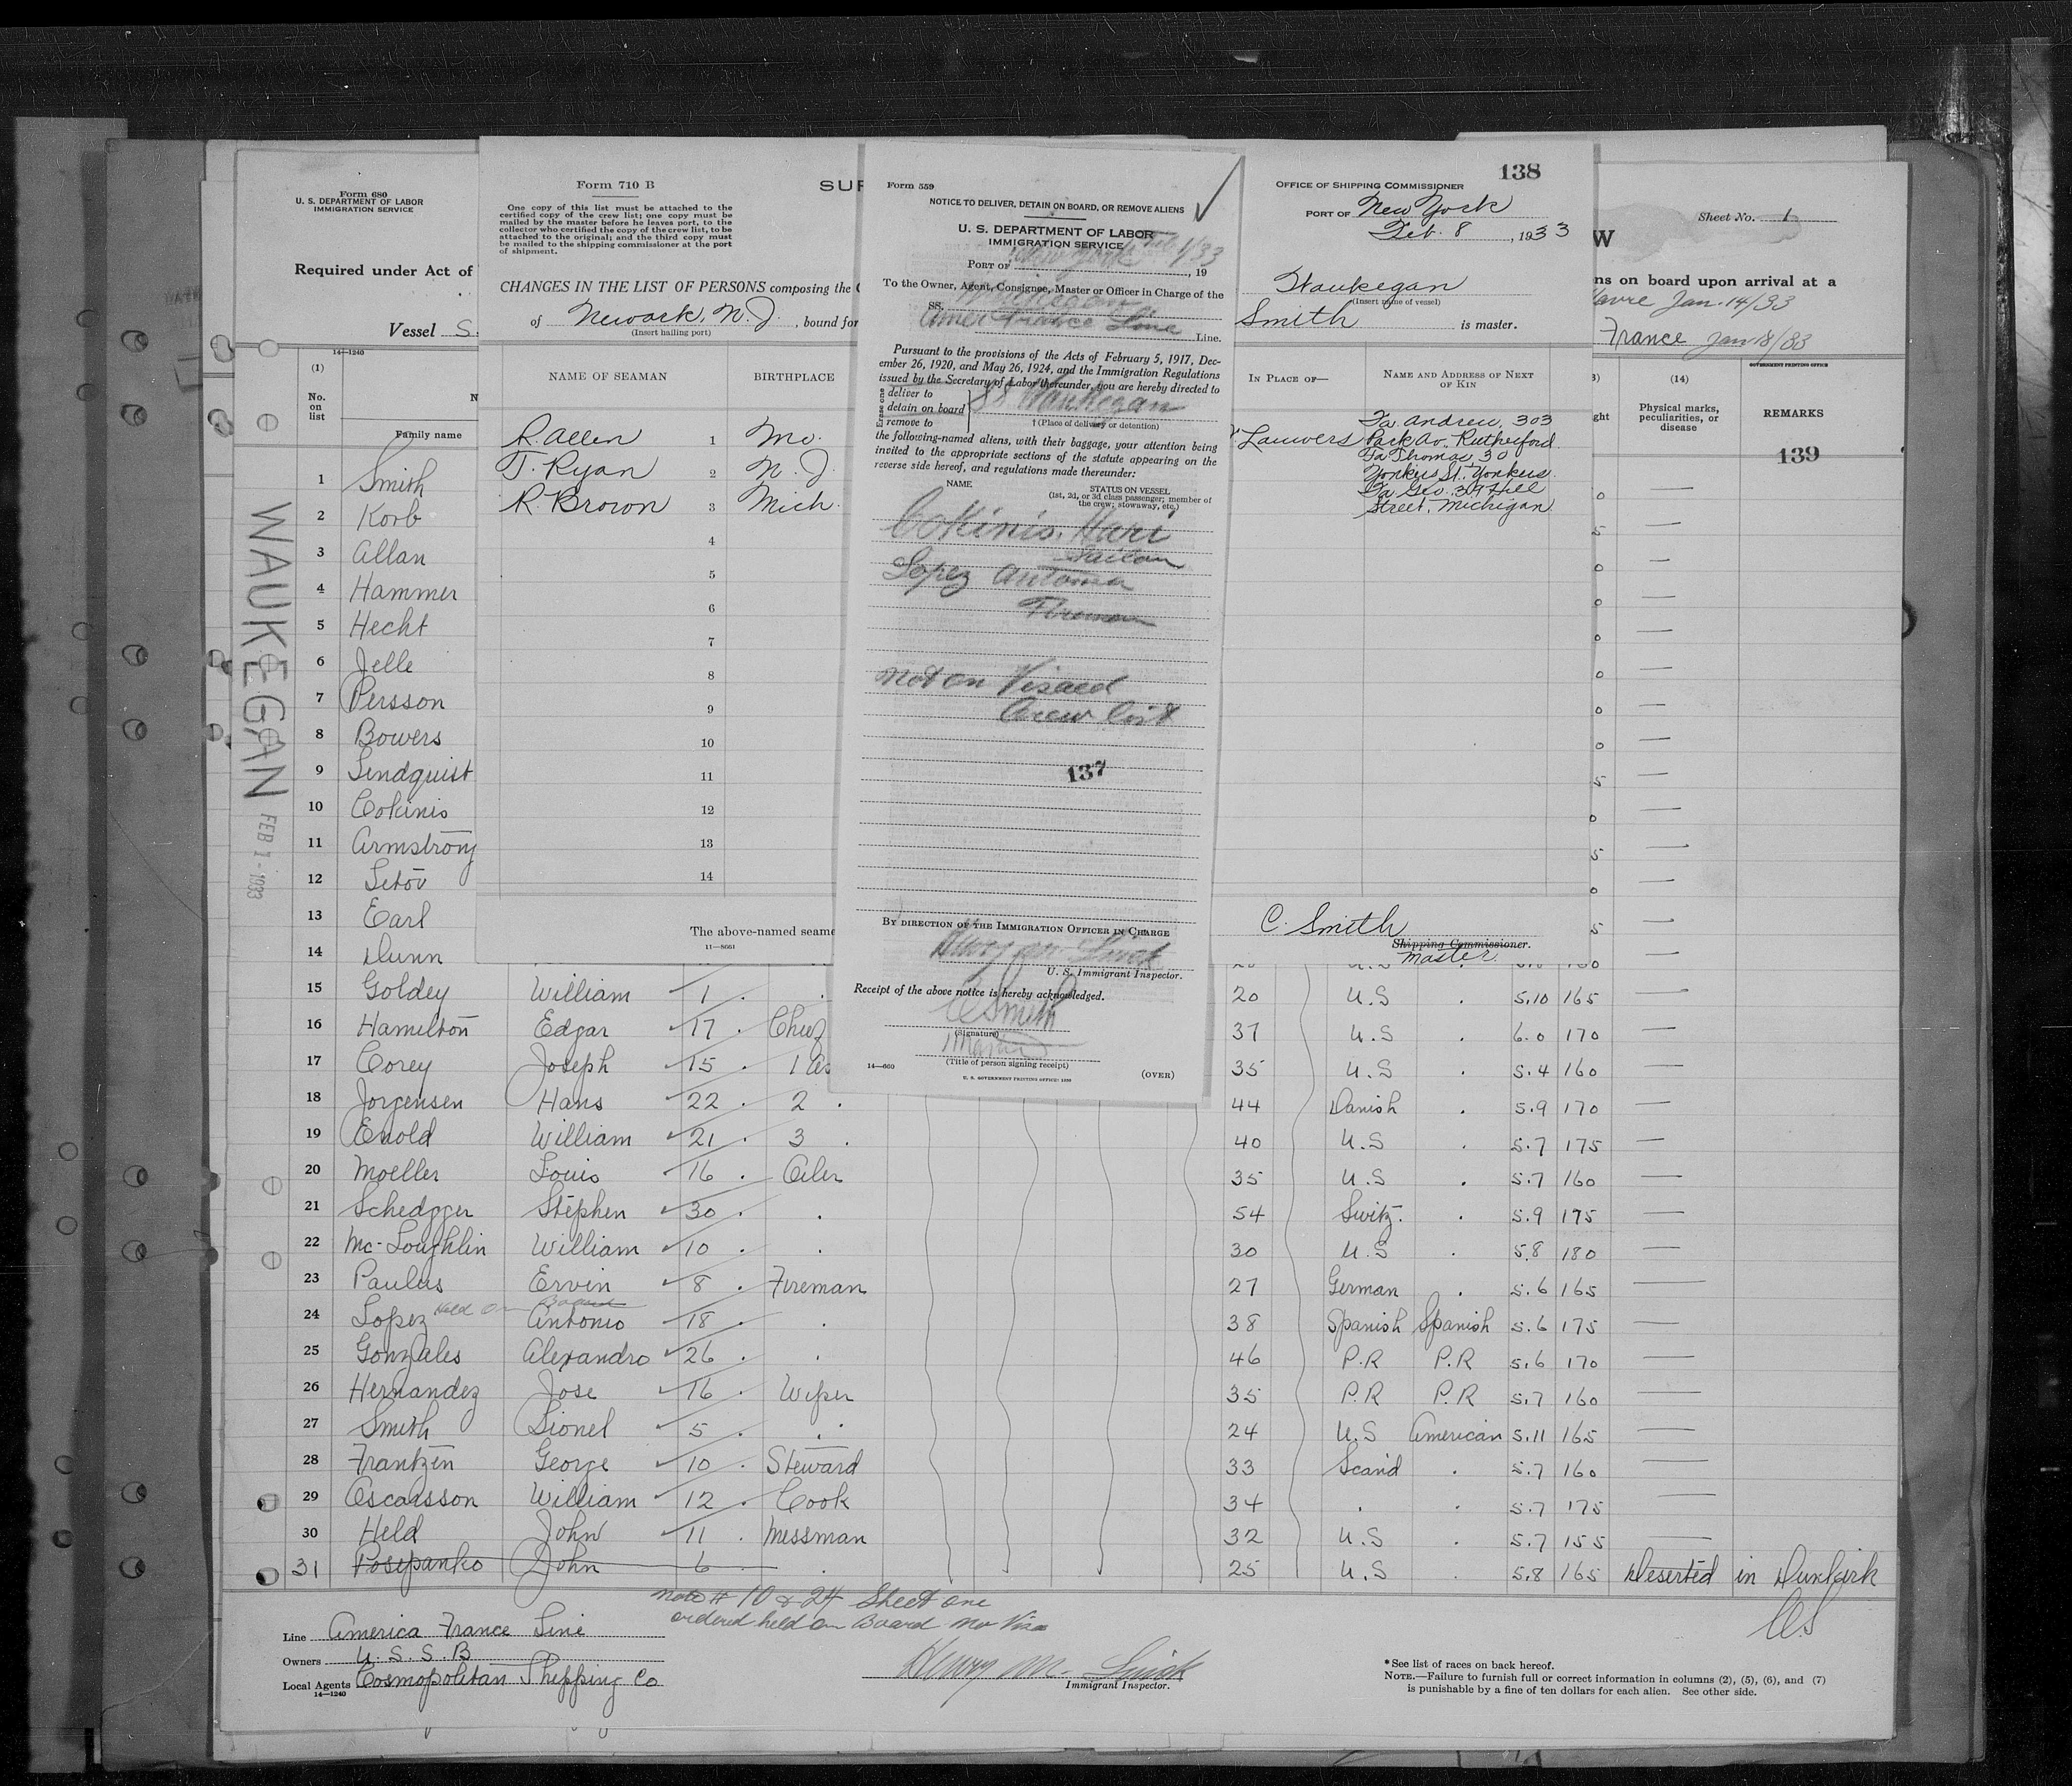 Form 680
U. S. DEPARTMENT OF LABOR
IMMIGRATION SERVICE
Required under Act of
Vessel S.
14—1240
(1)
No.
on
list
N
Family name
WAUKEGAN FEB 1 - 1933
1 Smith
2 Korb
3 Allan
4 Hammer
5 Hecht
6 Jelle
7 Persson
8 Bowers
9 Lindquist
10 Cokinis
11 Armstrong
12 Letov
13 Earl
14 Dunn
Form 710 B
SUP
One copy of this list must be attached to the
certified copy of the crew list; one copy must be
mailed by the master before he leaves port, to the
collector who certified the copy of the crew list, to be
attached to the original; and the third copy must
be mailed to the shipping commissioner at the port
of shipment.
CHANGES IN THE LIST OF PERSONS composing the C
of Newark, N. J. , bound for
(Insert hailing port)
NAME OF SEAMAN BIRTHPLACE
R. Allen 1 Mo.
T. Ryan 2 N. J.
R. Brown 3 Mich.
4
5
6
7
8
9
10
11
12
13
14
The above-named seame
11—8661
Form 559
NOTICE TO DELIVER, DETAIN ON BOARD, OR REMOVE ALIENS
U. S. DEPARTMENT OF LABOR
IMMIGRATION SERVICE
PORT OF New York Feb 1/33 , 19
To the Owner, Agent, Consignee, Master or Officer in Charge of the
SS. Waukegan
Amer France Line Line.
Pursuant to the provisions of the Acts of February 5, 1917, Dec-
ember 26, 1920, and May 26, 1924, and the Immigration Regulations
issued by the Secretary of Labor thereunder, you are hereby directed to
Erase one
deliver to
detain on board SS Waukegan
remove to
† (Place of delivery or detention)
the following-named aliens, with their baggage, your attention being
invited to the appropriate sections of the statute appearing on the
reverse side hereof, and regulations made thereunder:
NAME STATUS ON VESSEL
(1st, 2d, or 3d class passenger; member of
the crew; stowaway, etc.)
Cokinis, Hari
Sailor
Lopez Antonio
Fireman
not on Visaed
Crew list
137
BY DIRECTION OF THE IMMIGRATION OFFICER IN CHARGE
U. S. Immigrant Inspector.
Receipt of the above notice is hereby acknowledged.
C Smith
(Signature)
Master
(Title of person signing receipt)
14—660
U. S. GOVERNMENT PRINTING OFFICE: 1930
(OVER)
138
OFFICE OF SHIPPING COMMISSIONER
PORT OF New York
Feb. 8 , 1933
Waukegan
(Insert name of vessel)
Smith is master.
IN PLACE OF— NAME AND ADDRESS OF NEXT
OF KIN
Lauwers Fa. Andrew, 303
Park Av. Rutherford
Fa Thomas, 30
Yonkers St. Yonkers
Fa Geo. 309 Hill
Street, Michigan
C. Smith
Shipping Commissioner.
Master
W
Sheet No. 1
ns on board upon arrival at a
Havre Jan. 14/33
France Jan 18/33
GOVERNMENT PRINTING OFFICE
ght
(14)
Physical marks,
peculiarities, or
disease
REMARKS
139
15 Goldey William 1 . . 20 U.S . 5.10 165 —
16 Hamilton Edgar 17 . Chief 37 U.S . 6.0 170 —
17 Corey Joseph 15 . 1 as 35 U.S . 5.4 160 —
18 Jorgensen Hans 22 . 2 . 44 Danish . 5.9 170 —
19 Enold William 21 . 3 . 40 U.S . 5.7 175 —
20 Moeller Louis 16 . Oiler 35 U.S . 5.7 160 —
21 Schedgger Stephen 30 . . 54 Switz. . 5.9 175 —
22 Mc-Loughlin William 10 . . 30 U.S . 5.8 180 —
23 Paulus Ervin 8 . Fireman 27 German . 5.6 165 —
Held on Board
24 Lopez Antonio 18 . . 38 Spanish Spanish 5.6 175 —
25 Gonzales Alexandro 26 . . 46 P.R P.R 5.6 170 —
26 Hernandez Jose 16 . Wiper 35 P.R P.R 5.7 160 —
27 Smith Lionel 5 . . 24 U.S American 5.11 165 —
28 Frantzen George 10 . Steward 33 Scand . 5.7 160 —
29 Oscarsson William 12 . Cook 34 . . 5.7 175 —
30 Held John 11 . Messman 32 U.S . 5.7 155 —
31 Posepanko John 6 . 25 U.S . 5.8 165 Deserted in Dunkirk
CS
Note # 10 & 24 Sheet one
ordered held on Board no Visa
Line America France Line
Owners U. S. S. B
Local Agents Cosmopolitan Shipping Co
14—1240
Henry M.
Immigrant Inspector.
* See list of races on back hereof.
NOTE.—Failure to furnish full or correct information in columns (2), (5), (6), and (7)
is punishable by a fine of ten dollars for each alien. See other side.